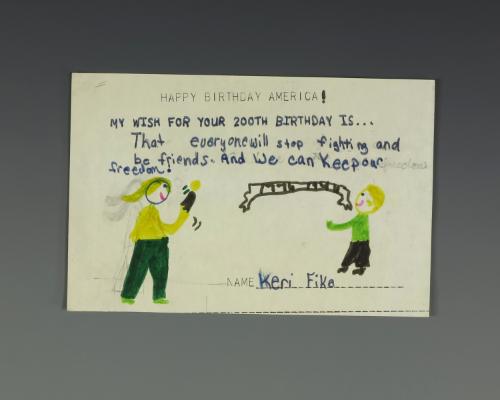 HAPPY BIRTHDAY AMERICA!
MY WISH FOR YOUR 200TH BIRTHDAY IS...
That everyone will stop fighting and
be friends. And We can Keep our
freedom!
NAME Keri Fike